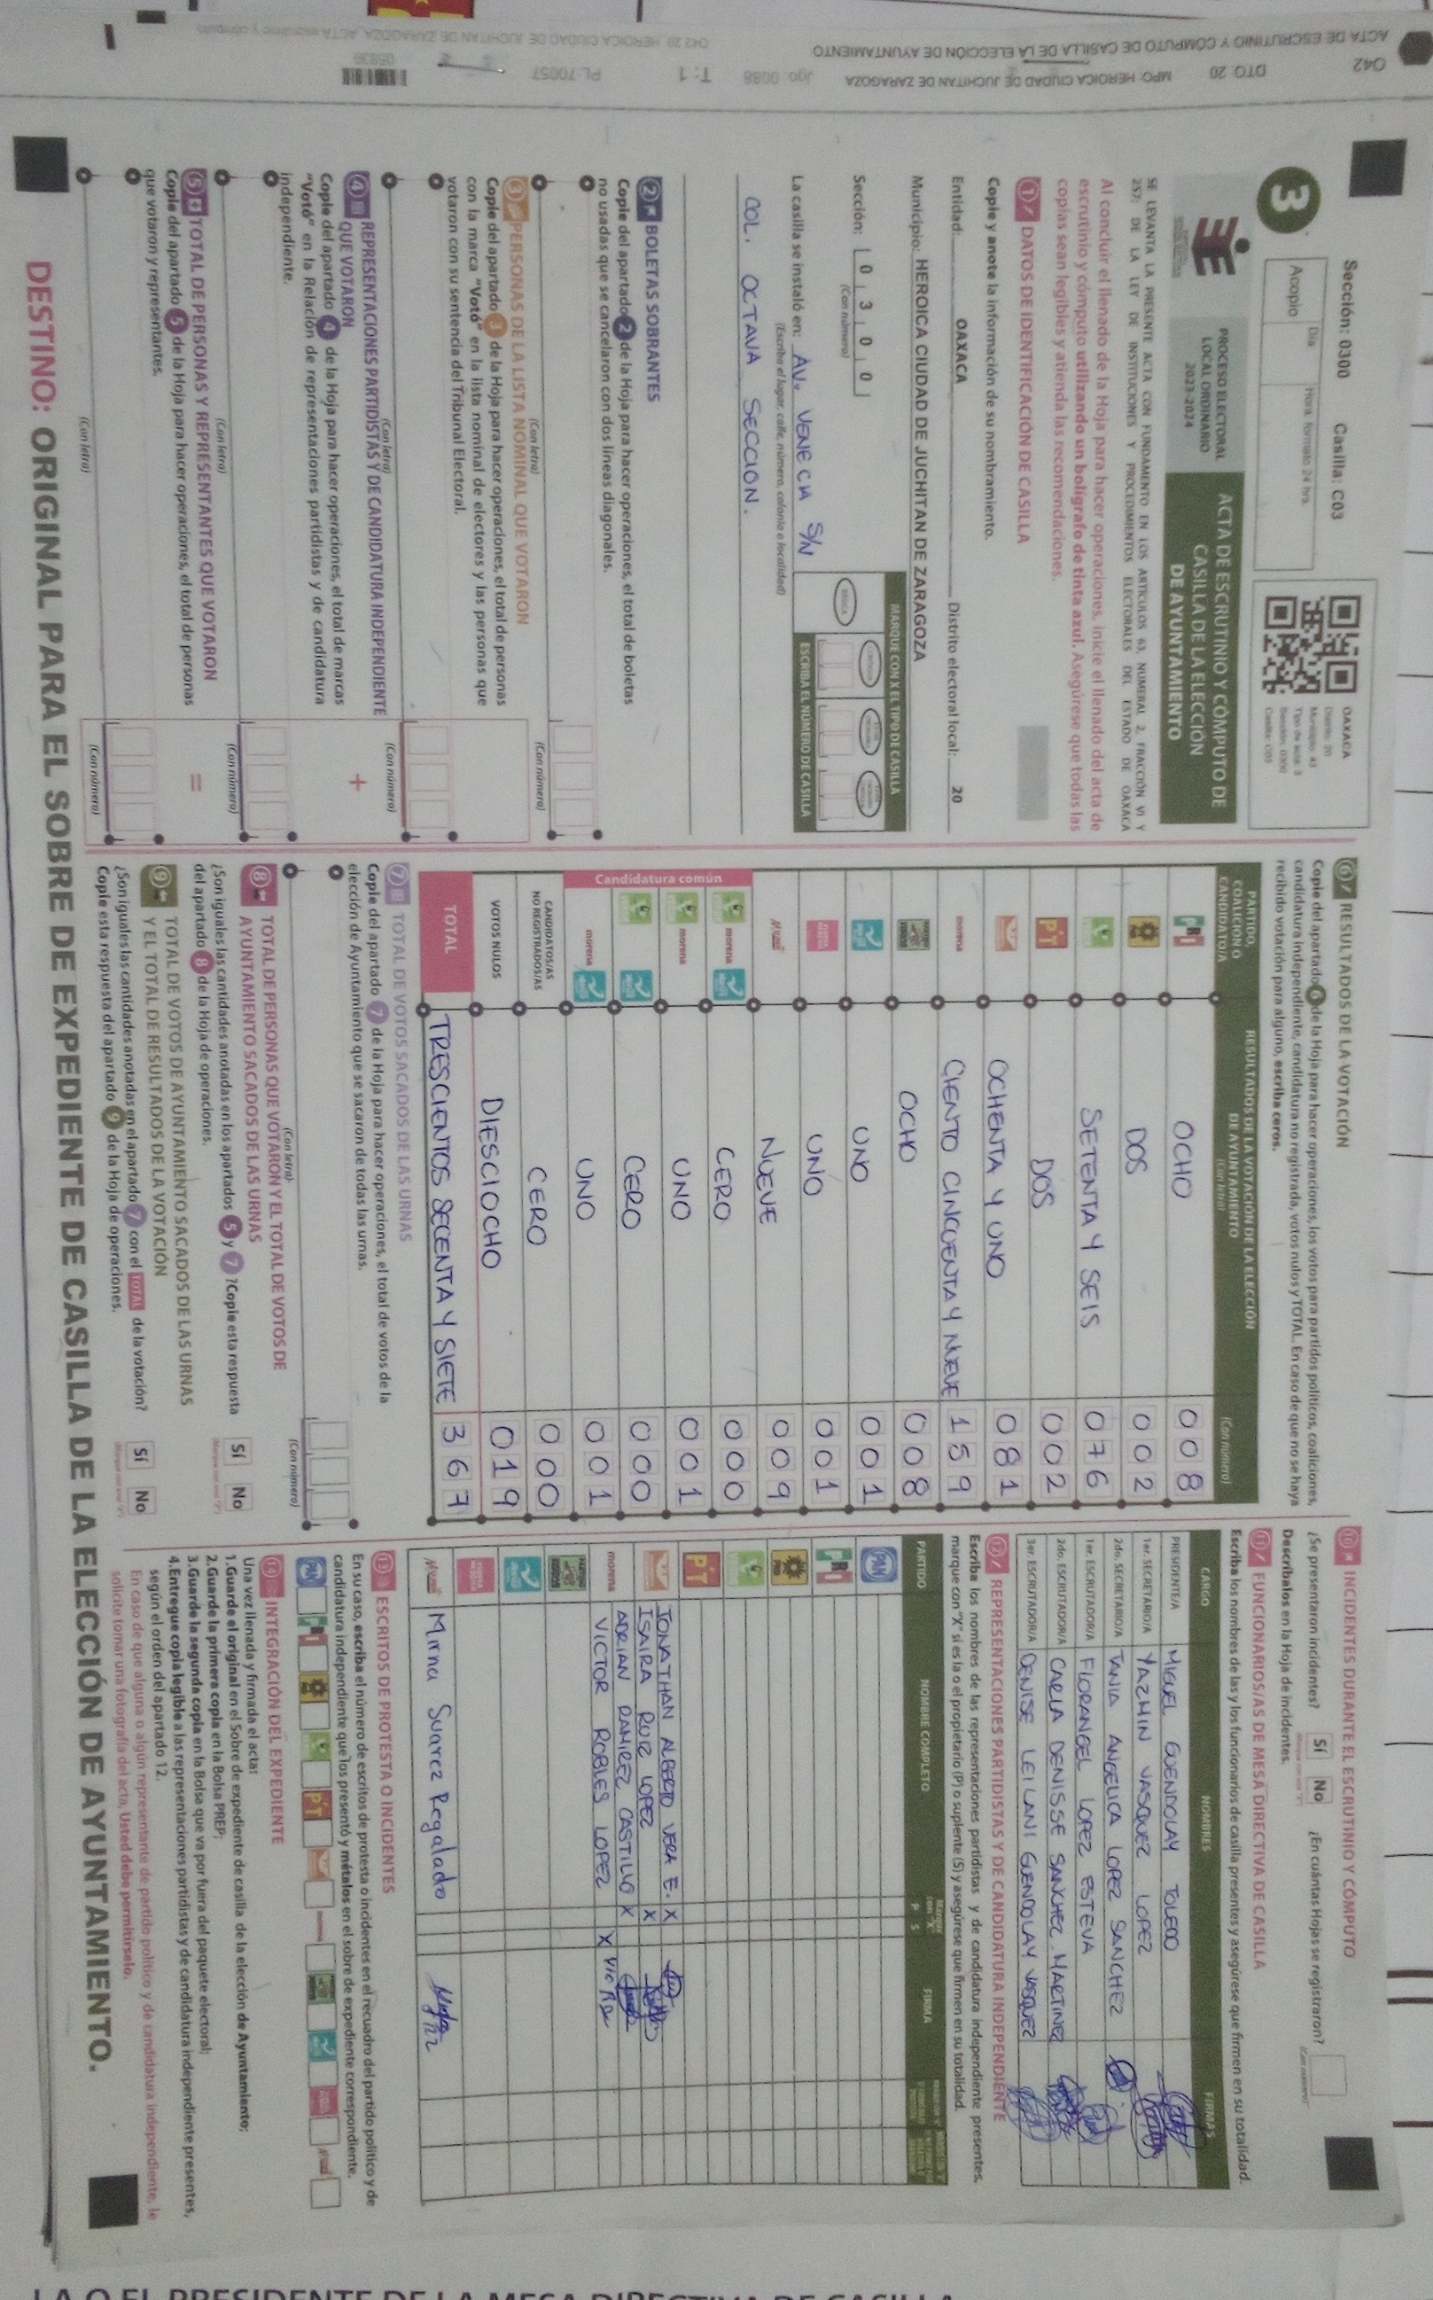 Sección: 0300 Casilla: C03
3
Día Hora: formato 24 hrs.
Acopio
OAXACA
Distrito: 20
Municipio: 43
Sección: 0300
Casilla: C03
PROCESO ELECTORAL
LOCAL ORDINARIO
2023-2024
ACTA DE ESCRUTINIO Y CÓMPUTO DE
CASILLA DE LA ELECCIÓN
DE AYUNTAMIENTO
SE LEVANTA LA PRESENTE ACTA CON FUNDAMENTO EN LOS ARTÍCULOS 63, NUMERAL 2, FRACCIÓN VI Y
257; DE LA LEY DE INSTITUCIONES Y PROCEDIMIENTOS ELECTORALES DEL ESTADO DE OAXACA
Al concluir el llenado de la Hoja para hacer operaciones, inicie el llenado del acta de
escrutinio y cómputo utilizando un bolígrafo de tinta azul. Asegúrese que todas las
copias sean legibles y atienda las recomendaciones.
1 DATOS DE IDENTIFICACIÓN DE CASILLA
Copie y anote la información de su nombramiento.
Entidad: OAXACA Distrito electoral local: 20
Municipio: HEROICA CIUDAD DE JUCHITAN DE ZARAGOZA
Sección: 0 3 0 0
(Con número)
MARQUE CON X EL TIPO DE CASILLA
BÁSICA
ESCRIBA EL NÚMERO DE CASILLA
La casilla se instaló en: AV. VENECIA S/N
(Escriba el lugar, calle, número, colonia o localidad)
COL. OCTAVA SECCION.
2 BOLETAS SOBRANTES
Copie del apartado 2 de la Hoja para hacer operaciones, el total de boletas
no usadas que se cancelaron con dos líneas diagonales.
(Con letra) (Con número)
3 PERSONAS DE LA LISTA NOMINAL QUE VOTARON
Copie del apartado 3 de la Hoja para hacer operaciones, el total de personas
con la marca "Votó" en la lista nominal de electores y las personas que
votaron con su sentencia del Tribunal Electoral.
(Con letra) (Con número)
4 REPRESENTACIONES PARTIDISTAS Y DE CANDIDATURA INDEPENDIENTE
QUE VOTARON
+
Copie del apartado 4 de la Hoja para hacer operaciones, el total de marcas
"Votó" en la Relación de representaciones partidistas y de candidatura
independiente.
(Con letra) (Con número)
5 TOTAL DE PERSONAS Y REPRESENTANTES QUE VOTARON
=
Copie del apartado 5 de la Hoja para hacer operaciones, el total de personas
que votaron y representantes.
(Con letra) (Con número)
6 RESULTADOS DE LA VOTACIÓN
Copie del apartado 6 de la Hoja para hacer operaciones, los votos para partidos políticos, coaliciones,
candidatura independiente, candidatura no registrada, votos nulos y TOTAL. En caso de que no se haya
recibido votación para alguno, escriba ceros.
PARTIDO,
COALICIÓN O
CANDIDATO/A
RESULTADOS DE LA VOTACIÓN DE LA ELECCIÓN
DE AYUNTAMIENTO
(Con letra) (Con número)
PRI OCHO 008
DOS 002
SETENTA Y SEIS 076
PT DOS 002
OCHENTA Y UNO 081
morena CIENTO CINCUENTA Y NUEVE 159
OCHO 008
UNO 001
UNO 001
NUEVE 009
Candidatura común
morena CERO 000
morena UNO 001
CERO 000
morena UNO 001
CANDIDATOS/AS
NO REGISTRADOS/AS CERO 000
VOTOS NULOS DIESCIOCHO 019
TOTAL TRESCIENTOS SECENTA Y SIETE 367
7 TOTAL DE VOTOS SACADOS DE LAS URNAS
Copie del apartado 7 de la Hoja para hacer operaciones, el total de votos de la
elección de Ayuntamiento que se sacaron de todas las urnas.
(Con letra) (Con número)
8 TOTAL DE PERSONAS QUE VOTARON Y EL TOTAL DE VOTOS DE
AYUNTAMIENTO SACADOS DE LAS URNAS
¿Son iguales las cantidades anotadas en los apartados 5 y 7? Copie esta respuesta
del apartado 8 de la Hoja de operaciones.
Sí No
9 TOTAL DE VOTOS DE AYUNTAMIENTO SACADOS DE LAS URNAS
Y EL TOTAL DE RESULTADOS DE LA VOTACIÓN
¿Son iguales las cantidades anotadas en el apartado 7 con el TOTAL de la votación?
Copie esta respuesta del apartado 9 de la Hoja de operaciones.
Sí No
10 INCIDENTES DURANTE EL ESCRUTINIO Y CÓMPUTO
¿Se presentaron incidentes? Sí No ¿En cuántas Hojas se registraron?
Descríbalos en la Hoja de incidentes.
11 FUNCIONARIOS/AS DE MESA DIRECTIVA DE CASILLA
Escriba los nombres de las y los funcionarios de casilla presentes y asegúrese que firmen en su totalidad.
CARGO NOMBRES FIRMAS
PRESIDENTE/A MIGUEL GUENDOLAY TOLEDO
1er. SECRETARIO/A YAZMIN VASQUEZ LOPEZ
2do. SECRETARIO/A TANIA ANGELICA LOPEZ SANCHEZ
1er. ESCRUTADOR/A FLORANGEL LOPEZ ESTEVA
2do. ESCRUTADOR/A CARLA DENISSE SANCHEZ MARTINEZ
3er. ESCRUTADOR/A DENISE LEILANI GUENDOLAY VASQUEZ
12 REPRESENTACIONES PARTIDISTAS Y DE CANDIDATURA INDEPENDIENTE
Escriba los nombres de las representaciones partidistas y de candidatura independiente presentes,
marque con "X" si es la o el propietario (P) o suplente (S) y asegúrese que firmen en su totalidad.
PARTIDO NOMBRE COMPLETO P S FIRMA
PAN
PRI
PT
JONATHAN ALBERTO VERA E. X
ISAIRA RUIZ LOPEZ X
morena ADRIAN RAMIREZ CASTILLO X
VICTOR ROBLES LOPEZ X
Mirna Suarez Regalado
13 ESCRITOS DE PROTESTA O INCIDENTES
En su caso, escriba el número de escritos de protesta o incidentes en el recuadro del partido político y de
candidatura independiente que los presentó y métalos en el sobre de expediente correspondiente.
PAN PRI PT
14 INTEGRACIÓN DEL EXPEDIENTE
Una vez llenada y firmada el acta:
1.Guarde el original en el Sobre de expediente de casilla de la elección de Ayuntamiento;
2.Guarde la primera copia en la Bolsa PREP;
3.Guarde la segunda copia en la Bolsa que va por fuera del paquete electoral;
4.Entregue copia legible a las representaciones partidistas y de candidatura independiente presentes,
según el orden del apartado 12.
En caso de que alguna o algún representante de partido político y de candidatura independiente, le
solicite tomar una fotografía del acta, Usted debe permitírselo.
DESTINO: ORIGINAL PARA EL SOBRE DE EXPEDIENTE DE CASILLA DE LA ELECCIÓN DE AYUNTAMIENTO.
042 DTO: 20 MPO: HEROICA CIUDAD DE JUCHITAN DE ZARAGOZA T: 1 PL: 70057
ACTA DE ESCRUTINIO Y CÓMPUTO DE CASILLA DE LA ELECCIÓN DE AYUNTAMIENTO